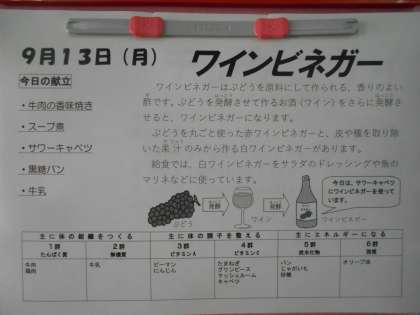 9月13日（月）
ワインビネガー
今日の献立
・牛肉の香味焼き
・スープ煮
・サワーキャベツ
・黒糖パン
・牛乳
ワインビネガーはぶどうを原料にして作られる、香りのよい
酢です。ぶどうを発酵させて作るお酒（ワイン）をさらに発酵さ
せると、ワインビネガーになります。
ぶどうを丸ごと使った赤ワインビネガーと、皮や種を取り除
いた果汁のみから作る白ワインビネガーがあります。
給食では、白ワインビネガーをサラダのドレッシングや魚の
マリネなどに使っています。
ぶどう
発酵
ワイン
発酵
ワインビネガー
今日は、サワーキャベツ
にワインビネガーを使って
います。
主に体の組織をつくる
主に体の調子を整える
主にエネルギーになる
1群
たんぱく質
2群
無機質
3群
ビタミンA
4群
ビタミンC
5群
炭水化物
6群
脂質
牛肉
鶏肉
牛乳
ピーマン
にんじん
たまねぎ
グリンピース
マッシュルーム
キャベツ
パン
じゃがいも
砂糖
オリーブ油